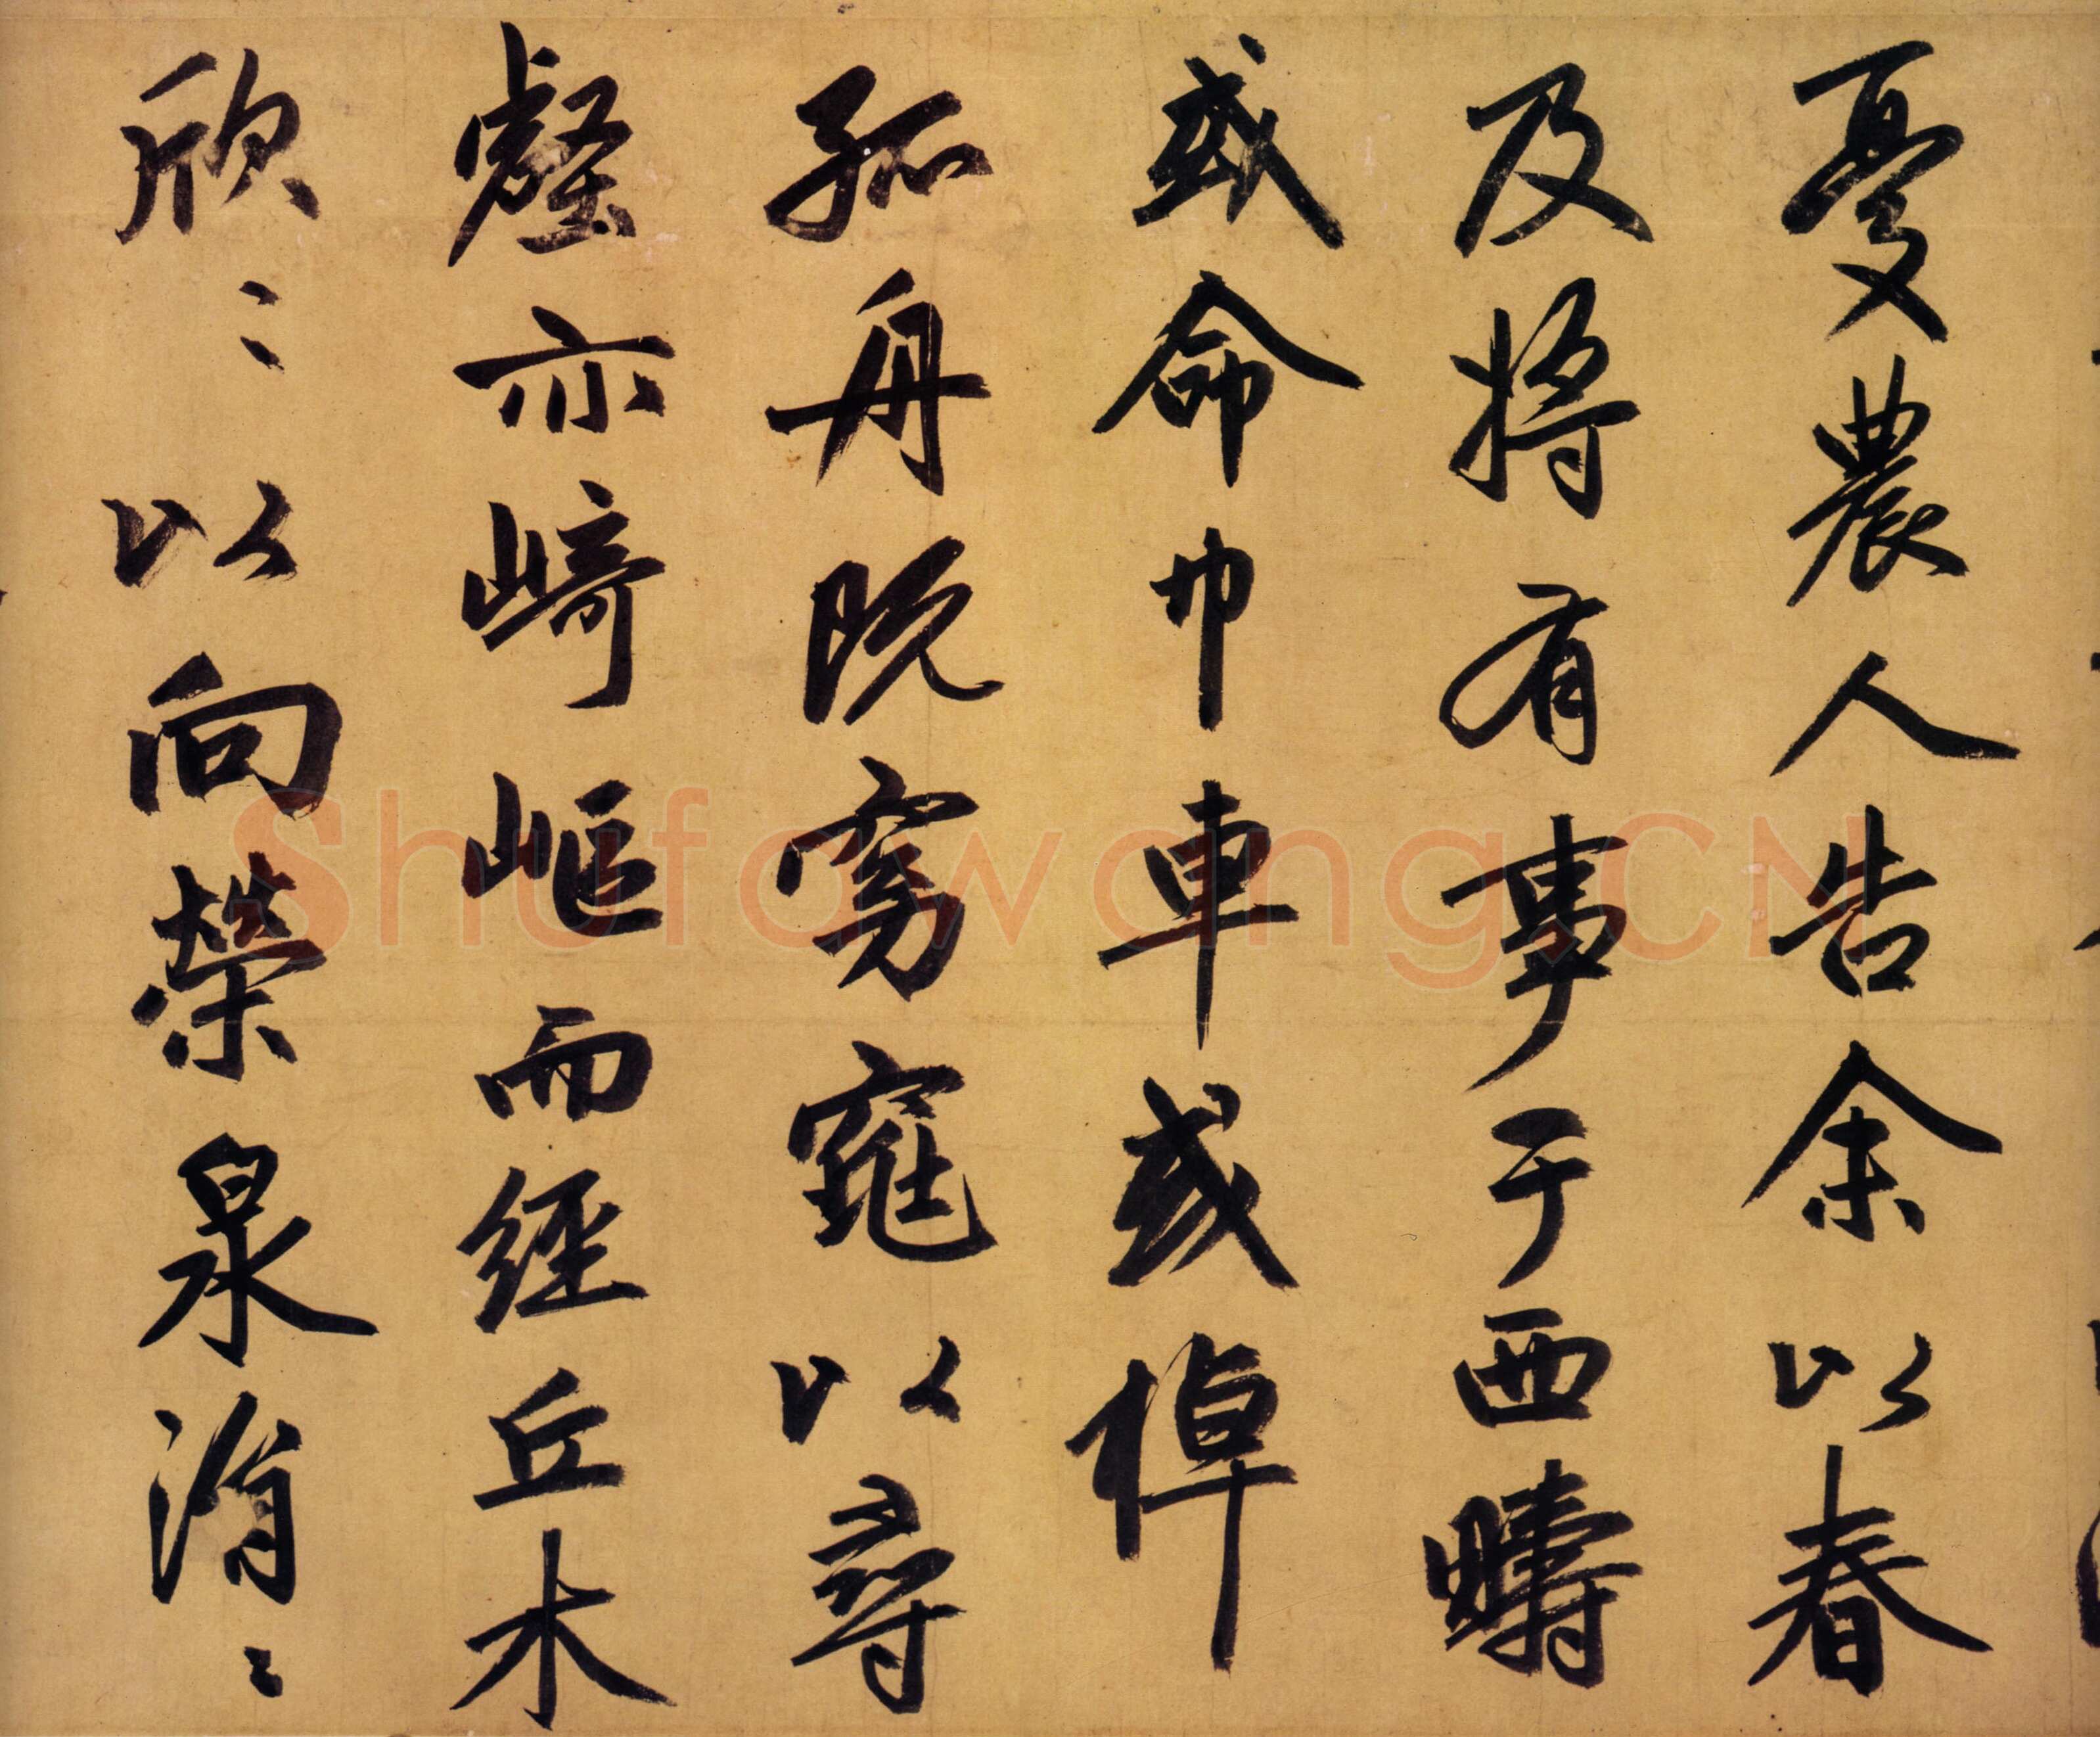 憂農人告余以春
及將有事于西疇
或命巾車或棹
孤舟既窈窕以尋
壑亦崎嶇而經丘木
欣〻以向榮泉涓〻
Shufawang.CN